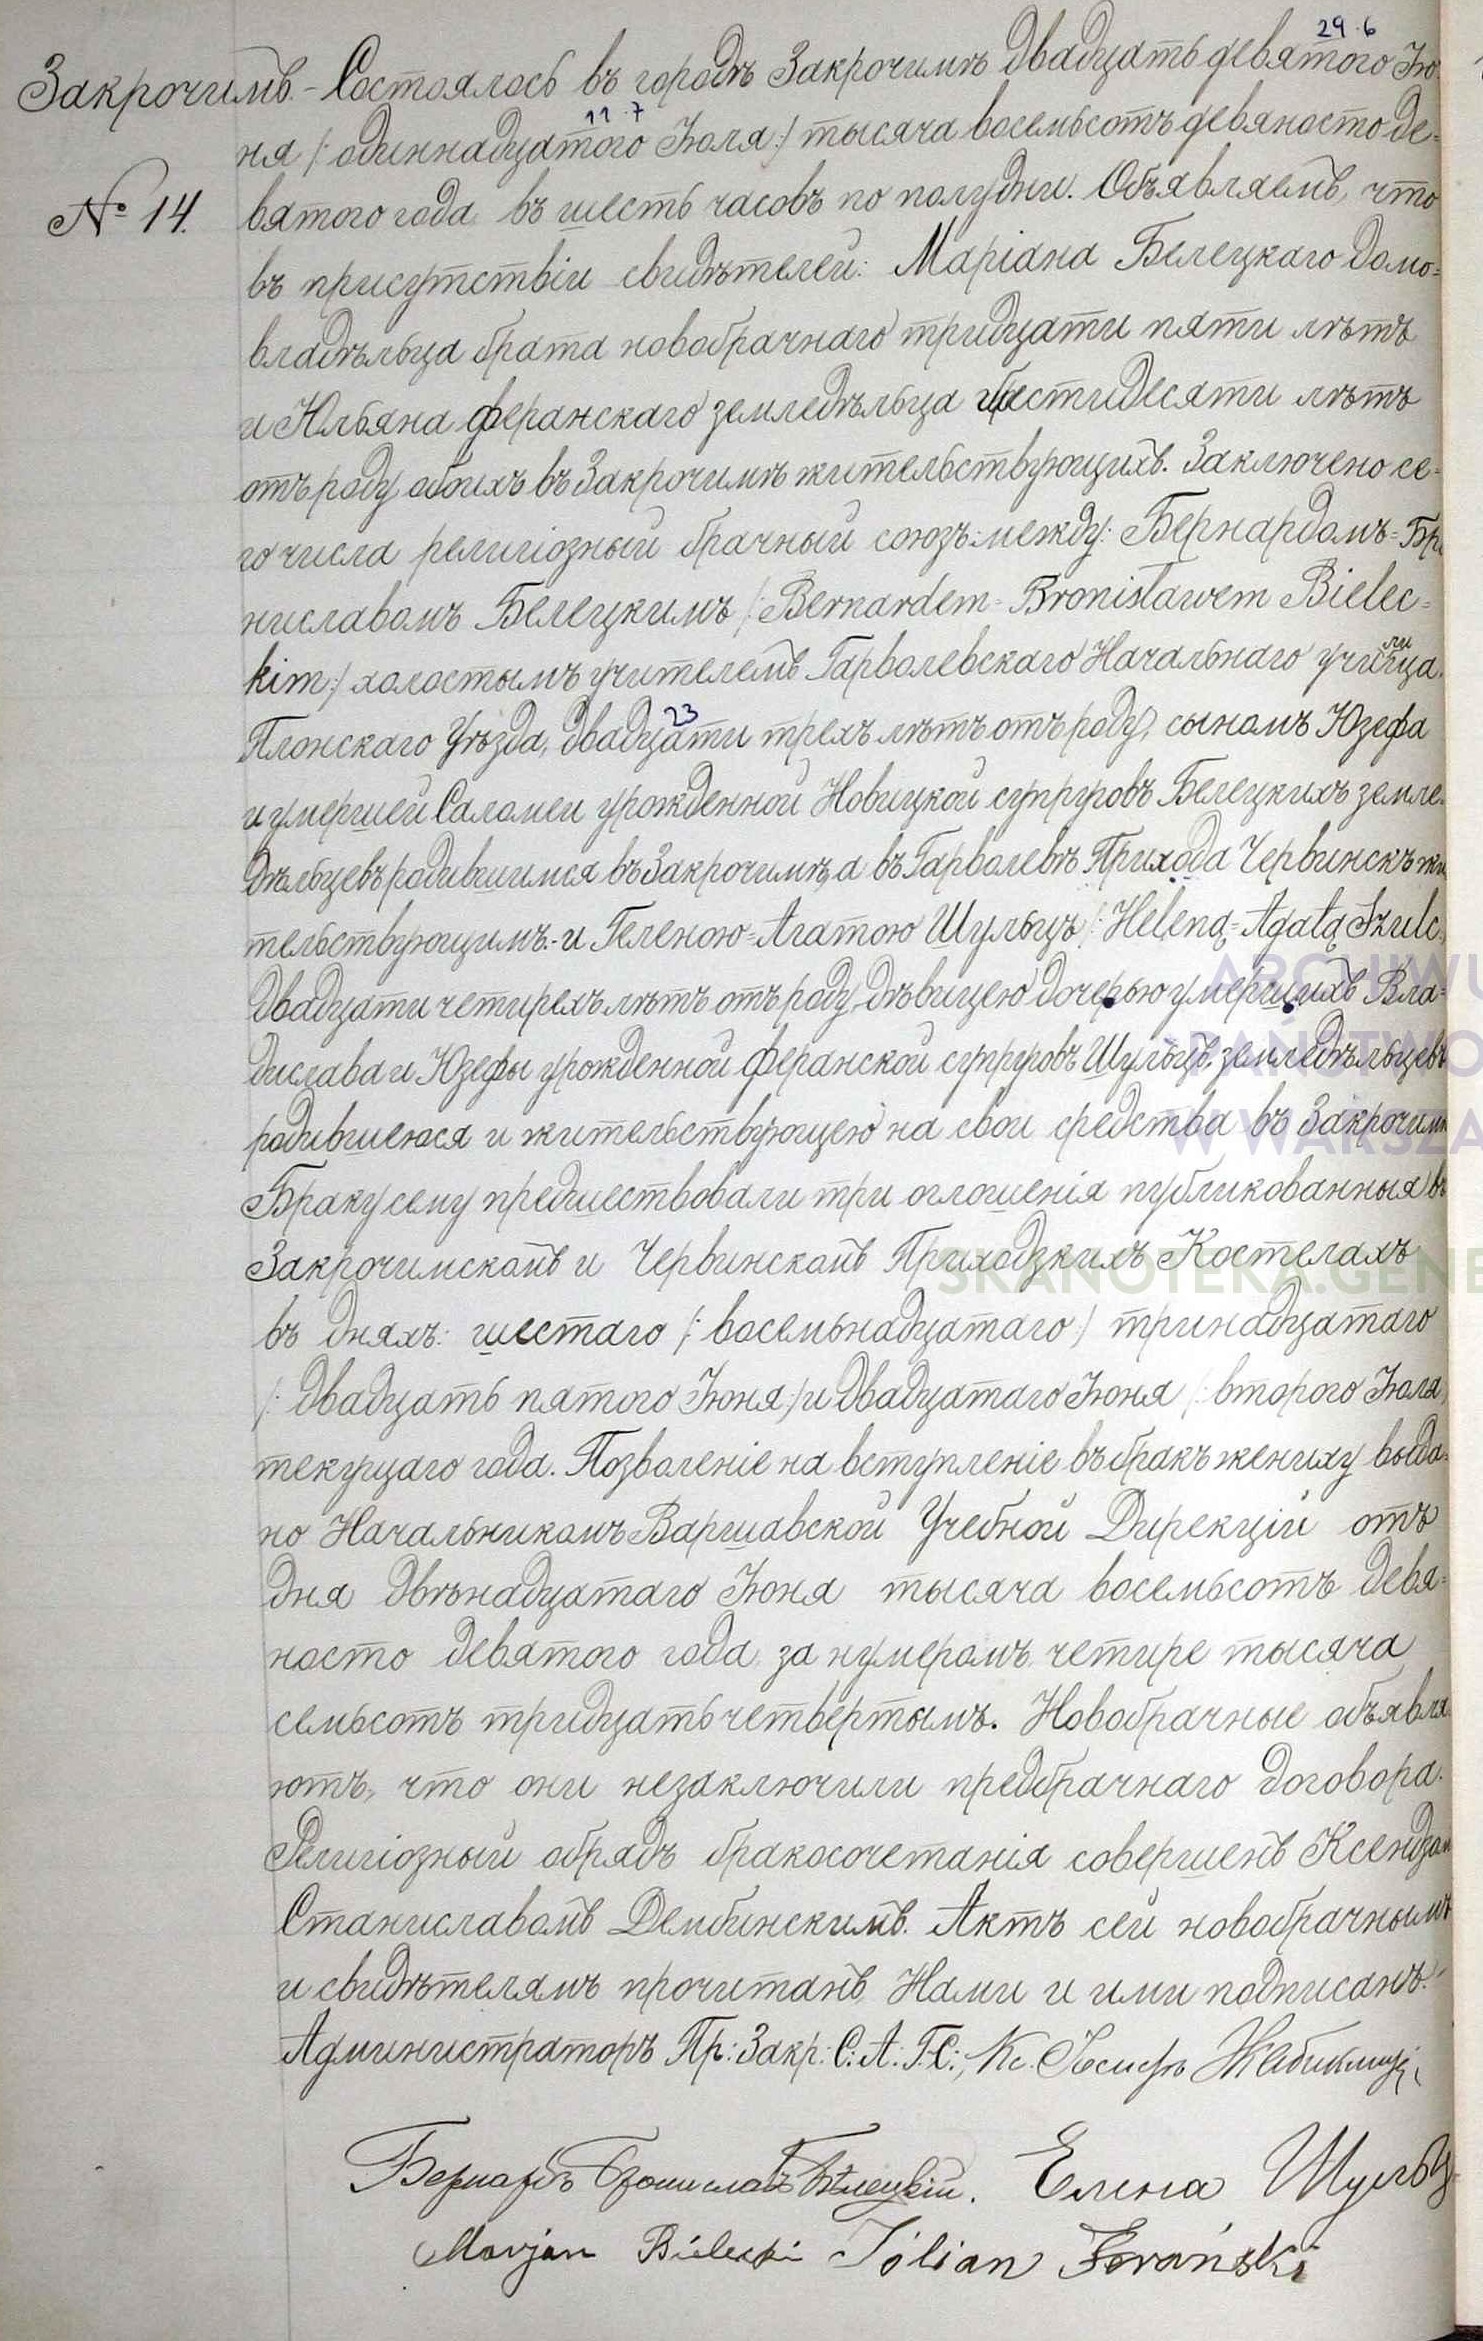 29.6
Закрочимъ.- Состоялось въ городѣ Закрочимѣ двадцать девятого Ію
11.7
ня /: одиннадцатого Іюля :/ тысяча восемьсотъ девяносто де=
№ 14. вятого года въ шесть часовъ по полудни. Объявляемъ, что
въ присутствіи свидѣтелей: Маріана Белецкаго домо=
владѣльца брата новобрачнаго тридцати пяти лѣтъ
и Юльяна Феранскаго земледѣльца шестидесяти лѣтъ
отъ роду, обоихъ въ Закрочимѣ жительствующихъ. Заключено се=
го числа религіозный брачный союзъ: между: Бернардомъ= Бр
ниславомъ Белецкимъ /: Bernardem= Bronisławem Bielec=
kim :/ холостымъ учителемъ Гарволевскаго Начальнаго училища
23
Плонскаго Уѣзда, двадцати трехъ лѣтъ отъ роду, сыномъ Юзефа
и умершей Саломеи урожденной Новицкой супруговъ Белецкихъ земле=
дѣльцевъ родившимся въ Закрочимѣ, а въ Гарволевѣ Прихода Червинскъ жи
тельствующимъ.- и Геленою=Агатою Шульцъ /: Heleną=Agatą Szulc
двадцати четирехъ лѣтъ отъ роду, дѣвицею дочерью умершихъ Вла=
дислава и Юзефы урожденной Феранской супруговъ Шульцъ, земледѣльцевъ
родившеюся и жительствующею на свои средства въ Закрочимѣ
Браку сему предшествовали три оглошенія публикованныя въ
Закрочимскомъ и Червинскомъ Приходзкихъ Костелахъ
въ дняхъ: шестаго /: восемьнадцатаго :/ тринадцатаго
/: двадцать пятого Іюня :/ и двадцатаго Іюня /: второго Іюля
текущаго года. Позволеніе на вступленіе въ бракъ жениху выда=
но Начальникомъ Варшавской Учебной Дирекціи отъ
дня двѣнадцатаго Іюня тысяча восемьсотъ девя=
носто девятого года за нумеромъ четире тысяча
семьсотъ тридцать четвертымъ. Новобрачные объявля
ютъ, что они незаключили предбрачнаго договора.
Религіозный обрядъ бракосочетанія совершенъ Ксендзом
Станиславомъ Дембинскимъ. Актъ сей новобрачнымъ
и свидѣтелямъ прочитанъ Нами и ими подписанъ.
Администраторъ Пр: Закр: С: А: Г: С:, Кс. Іосифъ
Бернардъ Брониславъ Бѣлецкій. Елена Шульц
Marjan Bielecki Jólian Ferański
ARCHIWU
PAŃSTWO
W WARSZA
SKANOTEKA.GENE